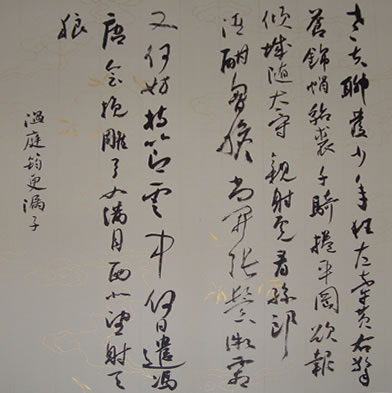 老夫聊發少年狂左牽黃右擎
蒼錦帽貂裘千騎捲平岡欲報
傾城隨太守親射虎看孫郎
酒酣胸膽尚開張鬢微霜
又何妨持節雲中何日遣馮
唐會挽雕弓如滿月西北望射天
狼
溫庭筠更漏子